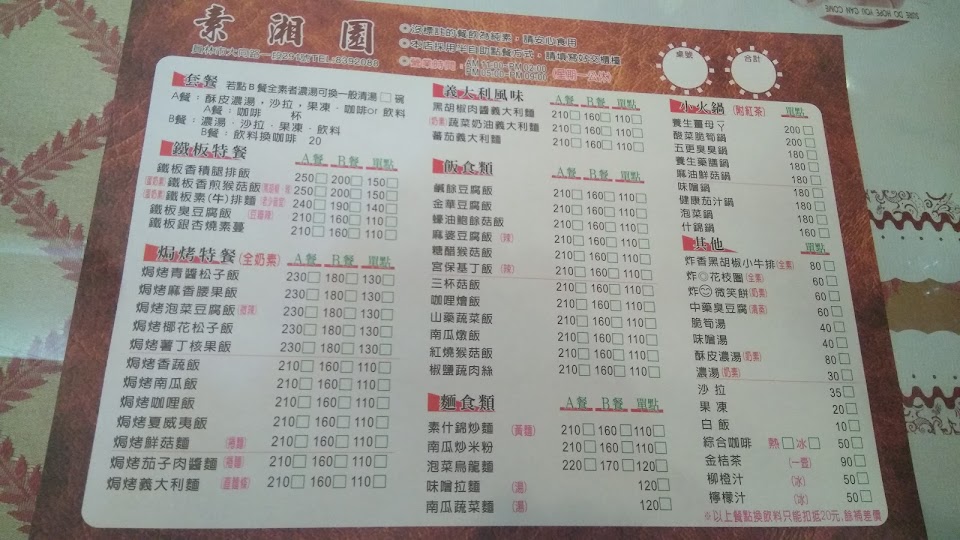 素湘園
員林市大同路一段291號TEL:8392088
◎沒標註的餐飲為純素，請安心食用
◎本店採用半自助點餐方式，請填寫好交櫃檯
◎營業時間：AM 11:00-PM 02:00
PM 05:00-PM 09:00 (星期一公休)
桌號
合計
SURE DO HOPE YOU CAN COME
套餐 若點B餐全素者濃湯可換一般清湯□碗
A餐：酥皮濃湯，沙拉，果凍，咖啡or飲料
A餐：咖啡 杯
B餐：濃湯，沙拉，果凍，飲料
B餐：飲料換咖啡 20
鐵板特餐 A餐 B餐 單點
鐵板香積腿排飯 250□ 200□ 150□
鐵板香煎猴菇飯 250□ 200□ 150□
鐵板素(牛)排麵 240□ 190□ 140□
鐵板臭豆腐飯 210□ 160□ 110□
鐵板銀杏燒素蔓 210□ 160□ 110□
焗烤特餐(全奶素) A餐 B餐 單點
焗烤青醬松子飯 230□ 180□ 130□
焗烤麻香腰果飯 230□ 180□ 130□
焗烤泡菜豆腐飯(微辣) 230□ 180□ 130□
焗烤椰花松子飯 230□ 180□ 130□
焗烤薯丁核果飯 230□ 180□ 130□
焗烤香蔬飯 210□ 160□ 110□
焗烤南瓜飯 210□ 160□ 110□
焗烤咖哩飯 210□ 160□ 110□
焗烤夏威夷飯 210□ 160□ 110□
焗烤鮮菇麵(捲麵) 210□ 160□ 110□
焗烤茄子肉醬麵(捲麵) 210□ 160□ 110□
焗烤義大利麵(直麵條) 210□ 160□ 110□
義大利風味 A餐 B餐 單點
黑胡椒肉醬義大利麵 210□ 160□ 110□
(奶素)蔬菜奶油義大利麵 210□ 160□ 110□
蕃茄義大利麵 210□ 160□ 110□
飯食類 A餐 B餐 單點
鹹餘豆腐飯 210□ 160□ 110□
金華豆腐飯 210□ 160□ 110□
蠔油鮑餘菇飯 210□ 160□ 110□
麻婆豆腐飯(辣) 210□ 160□ 110□
糖醋猴菇飯 210□ 160□ 110□
宮保基丁飯(辣) 210□ 160□ 110□
三杯菇飯 210□ 160□ 110□
咖哩燴飯 210□ 160□ 110□
山藥蔬菜飯 210□ 160□ 110□
南瓜燉飯 210□ 160□ 110□
紅燒猴菇飯 210□ 160□ 110□
椒鹽蔬肉絲 210□ 160□ 110□
麵食類 A餐 B餐 單點
素什錦炒麵(黃麵) 210□ 160□ 110□
南瓜炒米粉 210□ 160□ 110□
泡菜烏龍麵 220□ 170□ 120□
味噌拉麵(湯) 120□
南瓜蔬菜麵(湯) 120□
小火鍋(附紅茶) 單點
養生薑母ㄚ 200□
酸菜脆筍鍋 200□
五更臭臭鍋 180□
養生藥膳鍋 180□
麻油鮮菇鍋 180□
味噌鍋 180□
健康茄汁鍋 180□
泡菜鍋 180□
什錦鍋 160□
其他 單點
炸香黑胡椒小牛排(全素) 80□
炸◎花枝圈(全素) 60□
炸☺微笑餅(奶素) 60□
中藥臭豆腐(湯蒸) 60□
脆筍湯 40□
味噌湯 40□
酥皮濃湯(奶素) 80□
濃湯(奶素) 30□
沙拉 35□
果凍 20□
白飯 10□
綜合咖啡 熱□冰□ 50□
金桔茶 (一壺) 90□
柳橙汁 (冰) 50□
檸檬汁 (冰) 50□
※以上餐點換飲料只能扣抵20元，餘補差價